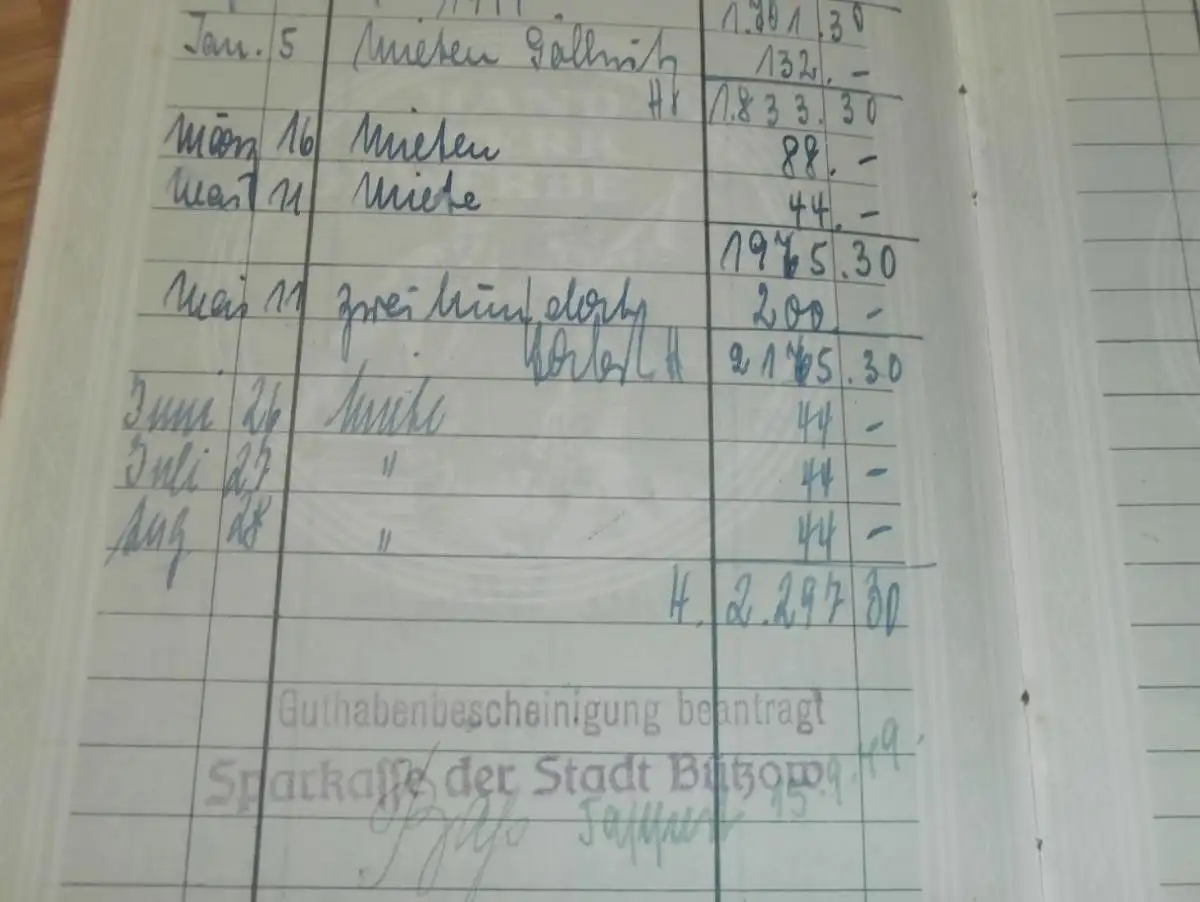 1.701.30
Jan. 5 Mieten 132.-
1.833.30
März 16 Mieten 88.-
Mai 11 Miete 44.-
1965.30
Mai 11 zweihundert 200 -
2165.30
Juni 26 Miete 44 -
Juli 27 " 44 -
Aug 28 " 44 -
H. 2.297 30
Guthabenbescheinigung beantragt
Sparkasse der Stadt Bützow.
15.9.49.